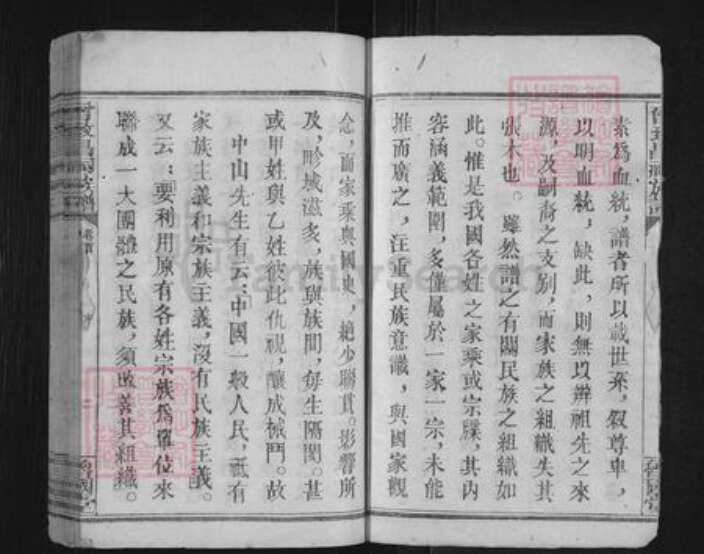 素爲血統，譜者所以載世系，叙尊卑，
以明血統，缺此，則無以辨祖先之來
源，及嗣裔之支别，而家族之組織失其
張本也。雖然譜之有關民族之組織如
此。惟是我國各姓之家乘或宗牒，其内
容涵義範圍，多僅屬於一家一宗，未能
推而廣之，注重民族意識，與國家觀
念，而家乘與國史，絶少聯貫。影響所
及，畛域滋多，族與族間，每生隔閡。甚
或甲姓與乙姓彼此仇視，釀成械鬥。故
中山先生有云：中國一般人民，祇有
家族主義和宗族主義，沒有民族主義。
又云：要利用原有各姓宗族爲單位來
聯成一大團體之民族，須改善其組織。
卷首
序
FamilySearch